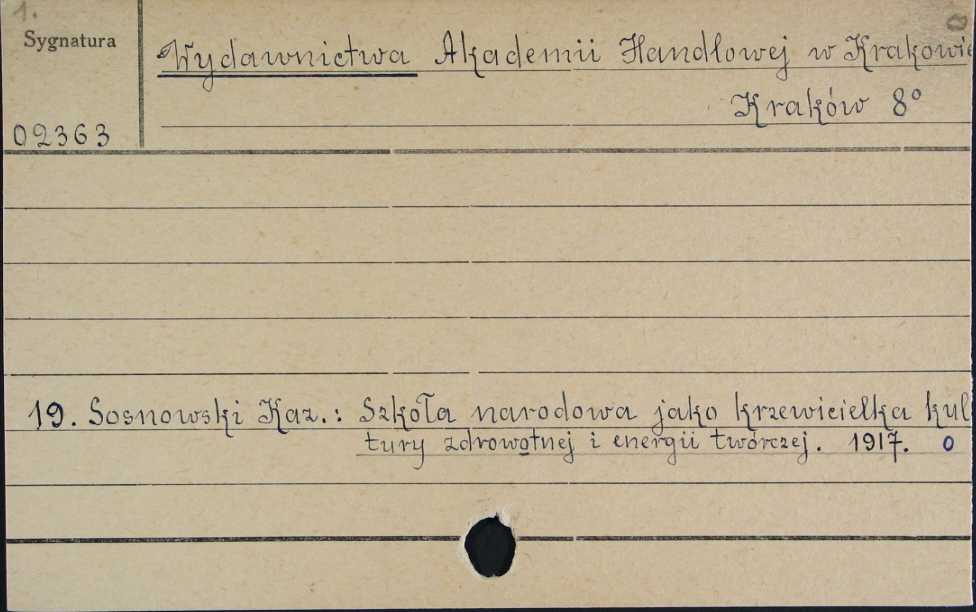 1.
Sygnatura
Wydawnictwa Akademii Handlowej w Krakowie
Kraków 8°
02363
19. Sosnowski Kaz.: Szkoła narodowa jako krzewicielka kul
tury zdrowotnej i energii twórczej. 1917. o